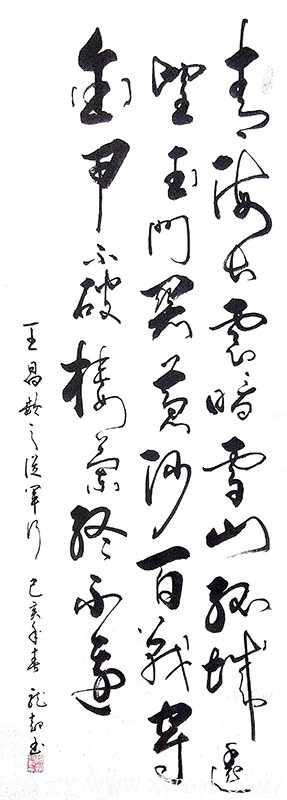 青海长雲暗雪山孤城遥
望玉门关黄沙百战穿
金甲不破楼蘭终不還
王昌龄之從军行 己亥年春 龍书